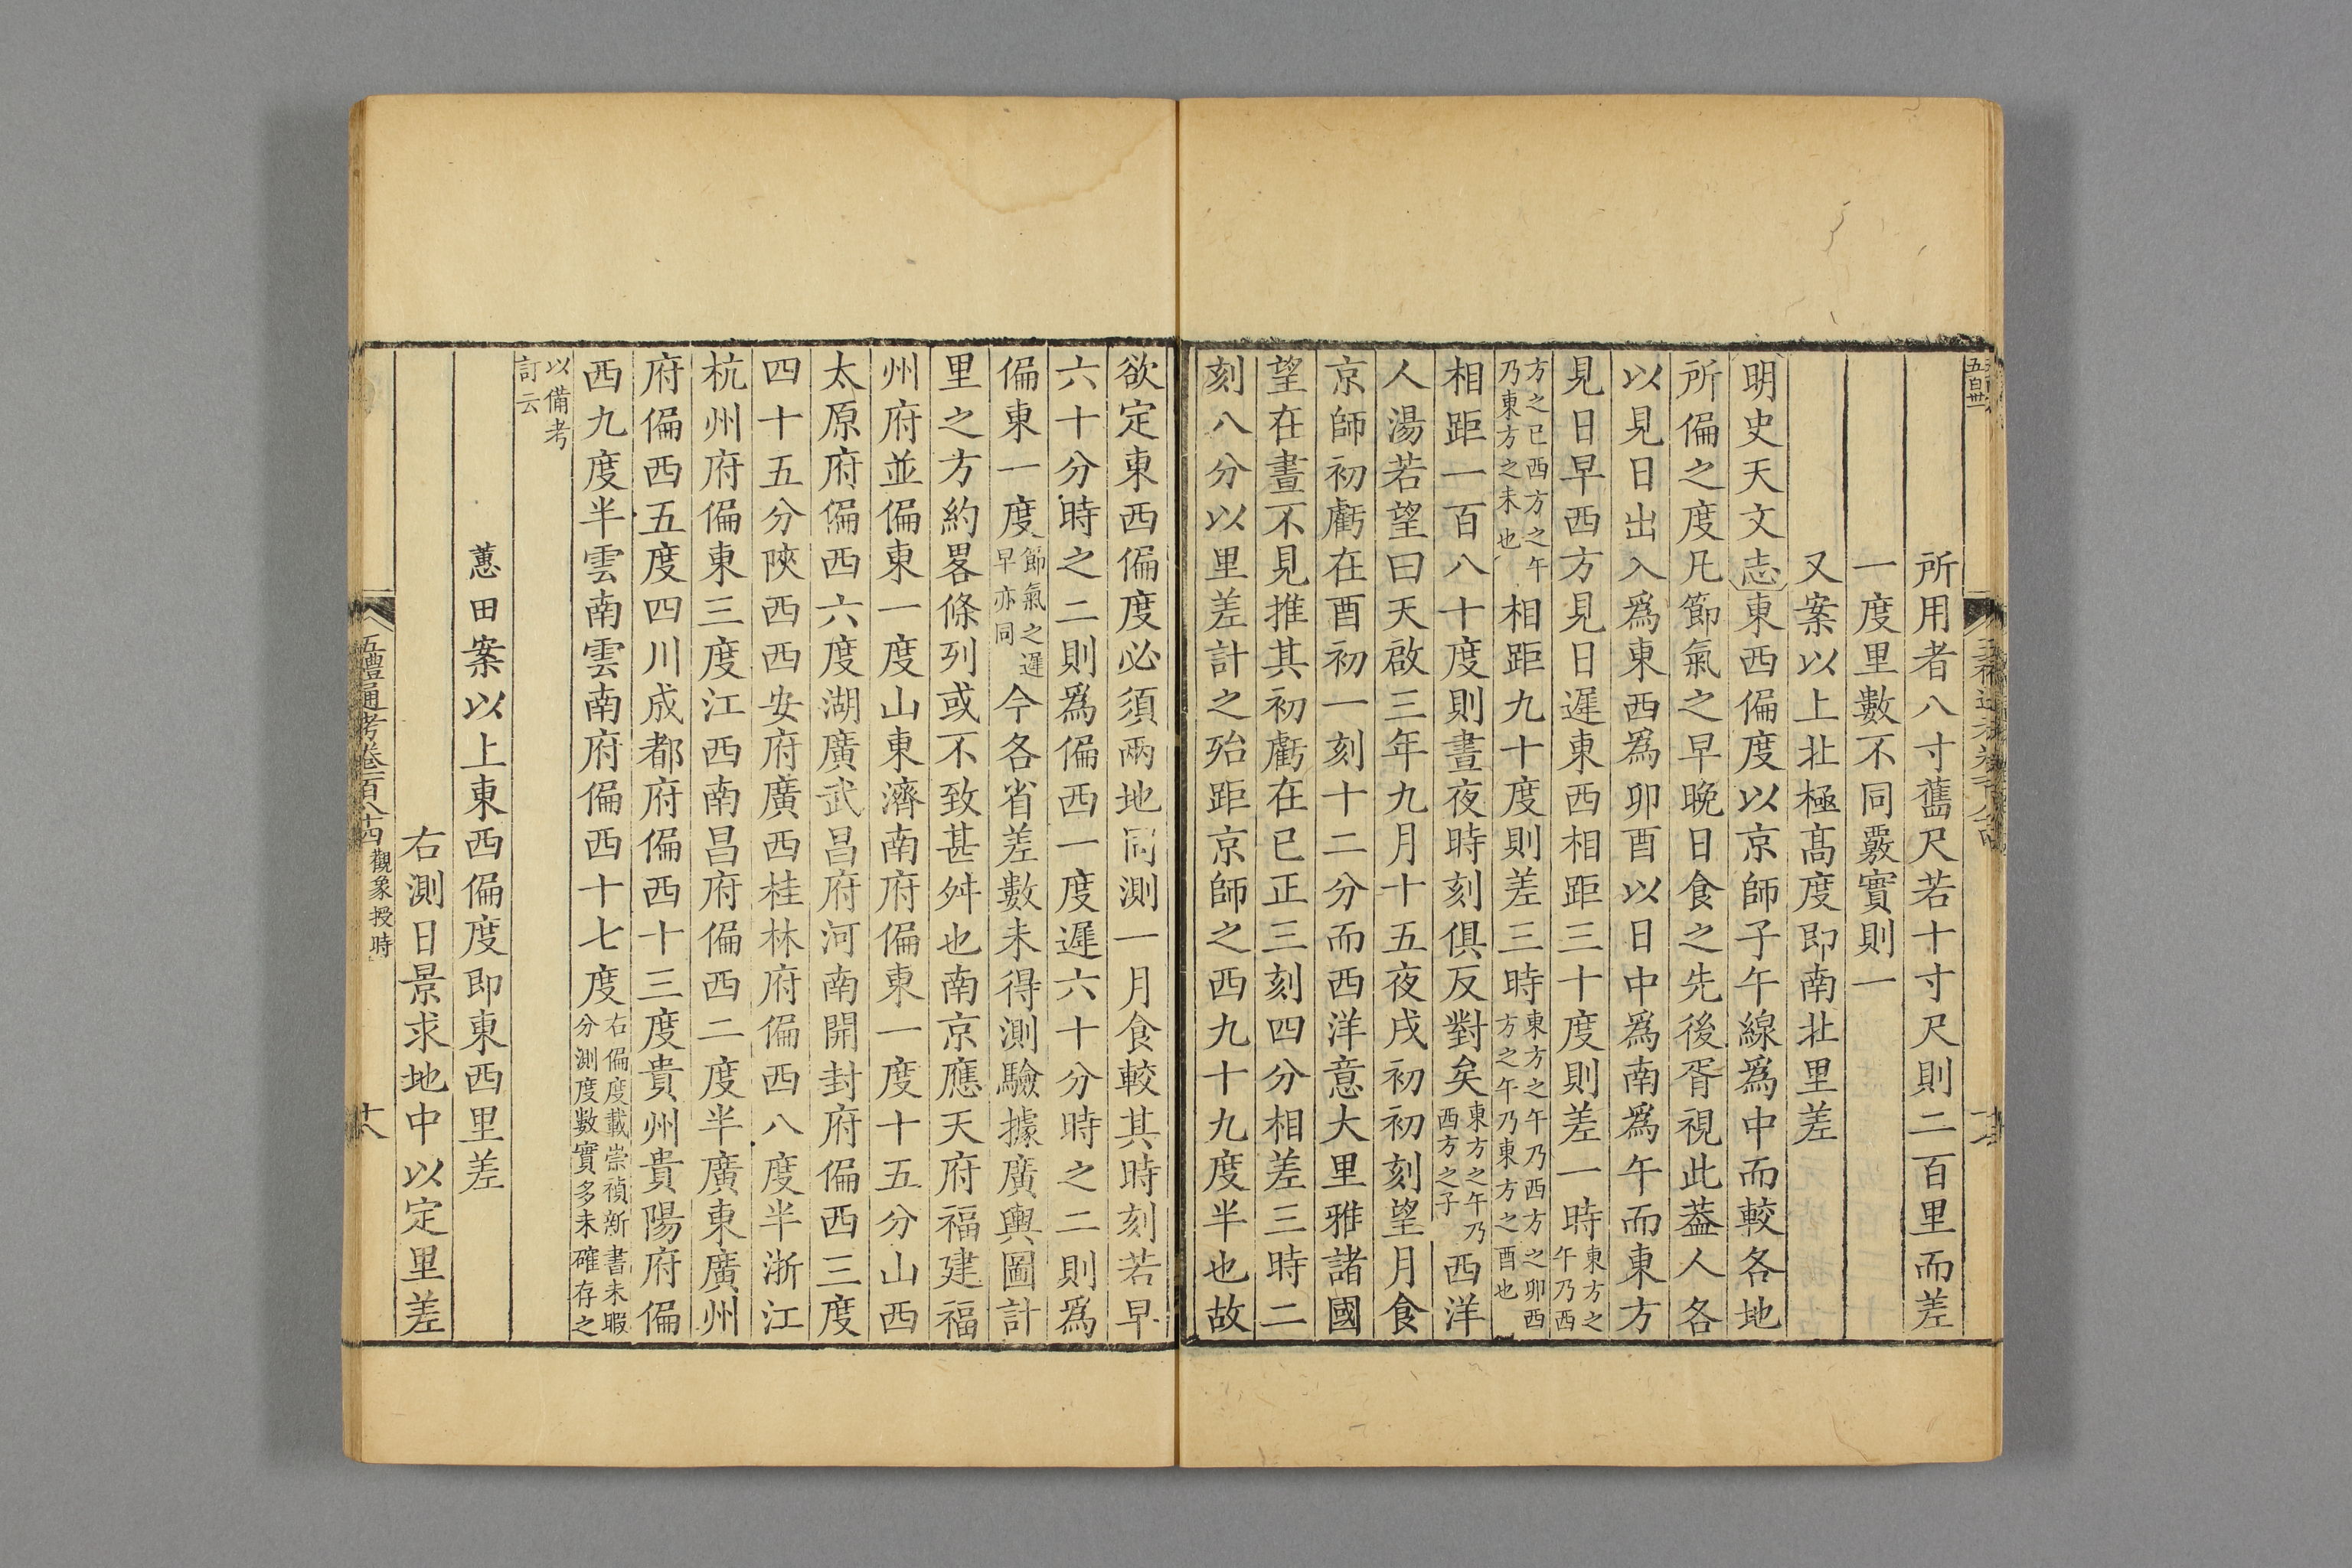 所用者八寸舊尺若十寸尺則二百里而差
一度里數不同覈實則一
又案以上北極高度即南北里差
明史天文志東西偏度以京師子午線爲中而較各地
所偏之度凡節氣之早晚日食之先後胥視此葢人各
以見日出入爲東西爲卯酉以日中爲南爲午而東方
見日早西方見日遲東西相距三十度則差一時東方之午乃西
方之巳西方之午乃東方之未也相距九十度則差三時東方之午乃西方之卯西方之午乃東方之酉也
相距一百八十度則晝夜時刻俱反對矣東方之午乃西方之子西洋
人湯若望曰天啟三年九月十五夜戌初初刻望月食
京師初虧在酉初一刻十二分而西洋意大里雅諸國
望在晝不見推其初虧在巳正三刻四分相差三時二
刻八分以里差計之殆距京師之西九十九度半也故
欲定東西偏度必須兩地同測一月食較其時刻若早
六十分時之二則爲偏西一度遲六十分時之二則爲
偏東一度節氣之遲早亦同今各省差數未得測驗據廣輿圖計
里之方約畧條列或不致甚舛也南京應天府福建福
州府並偏東一度山東濟南府偏東一度十五分山西
太原府偏西六度湖廣武昌府河南開封府偏西三度
四十五分陝西西安府廣西桂林府偏西八度半浙江
杭州府偏東三度江西南昌府偏西二度半廣東廣州
府偏西五度四川成都府偏西十三度貴州貴陽府偏
西九度半雲南雲南府偏西十七度右偏度載崇禎新書未暇分測度數實多未確存之
以備考訂云
蕙田案以上東西偏度即東西里差
右測日景求地中以定里差
五禮通考卷一百八十四 觀象授時
十八